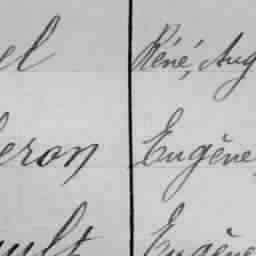 el René, Aug
eron Eugène
ault Eugène